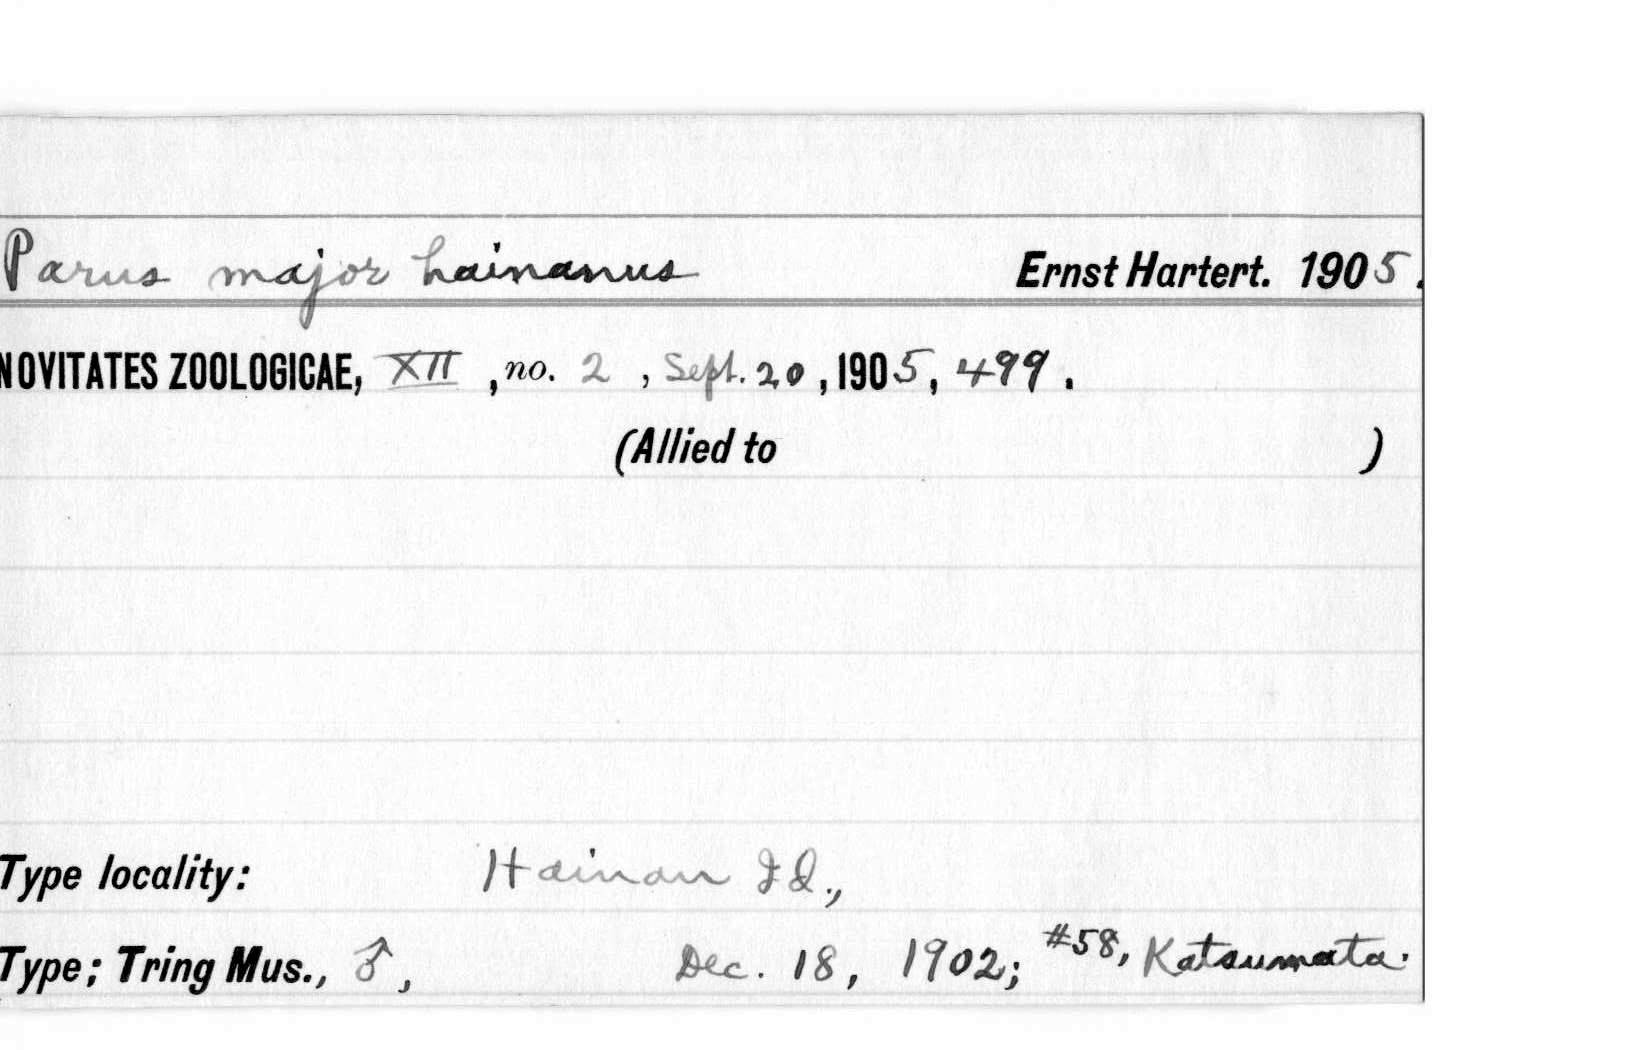 Parus major hainanus Ernst Hartert. 1905.
NOVITATES ZOOLOGICAE, XII, no. 2, Sept. 20, 1905, 499.
(Allied to )
Type locality: Hainan Id.,
Type; Tring Mus., ♂, Dec. 18, 1902; #58, Katsumata.